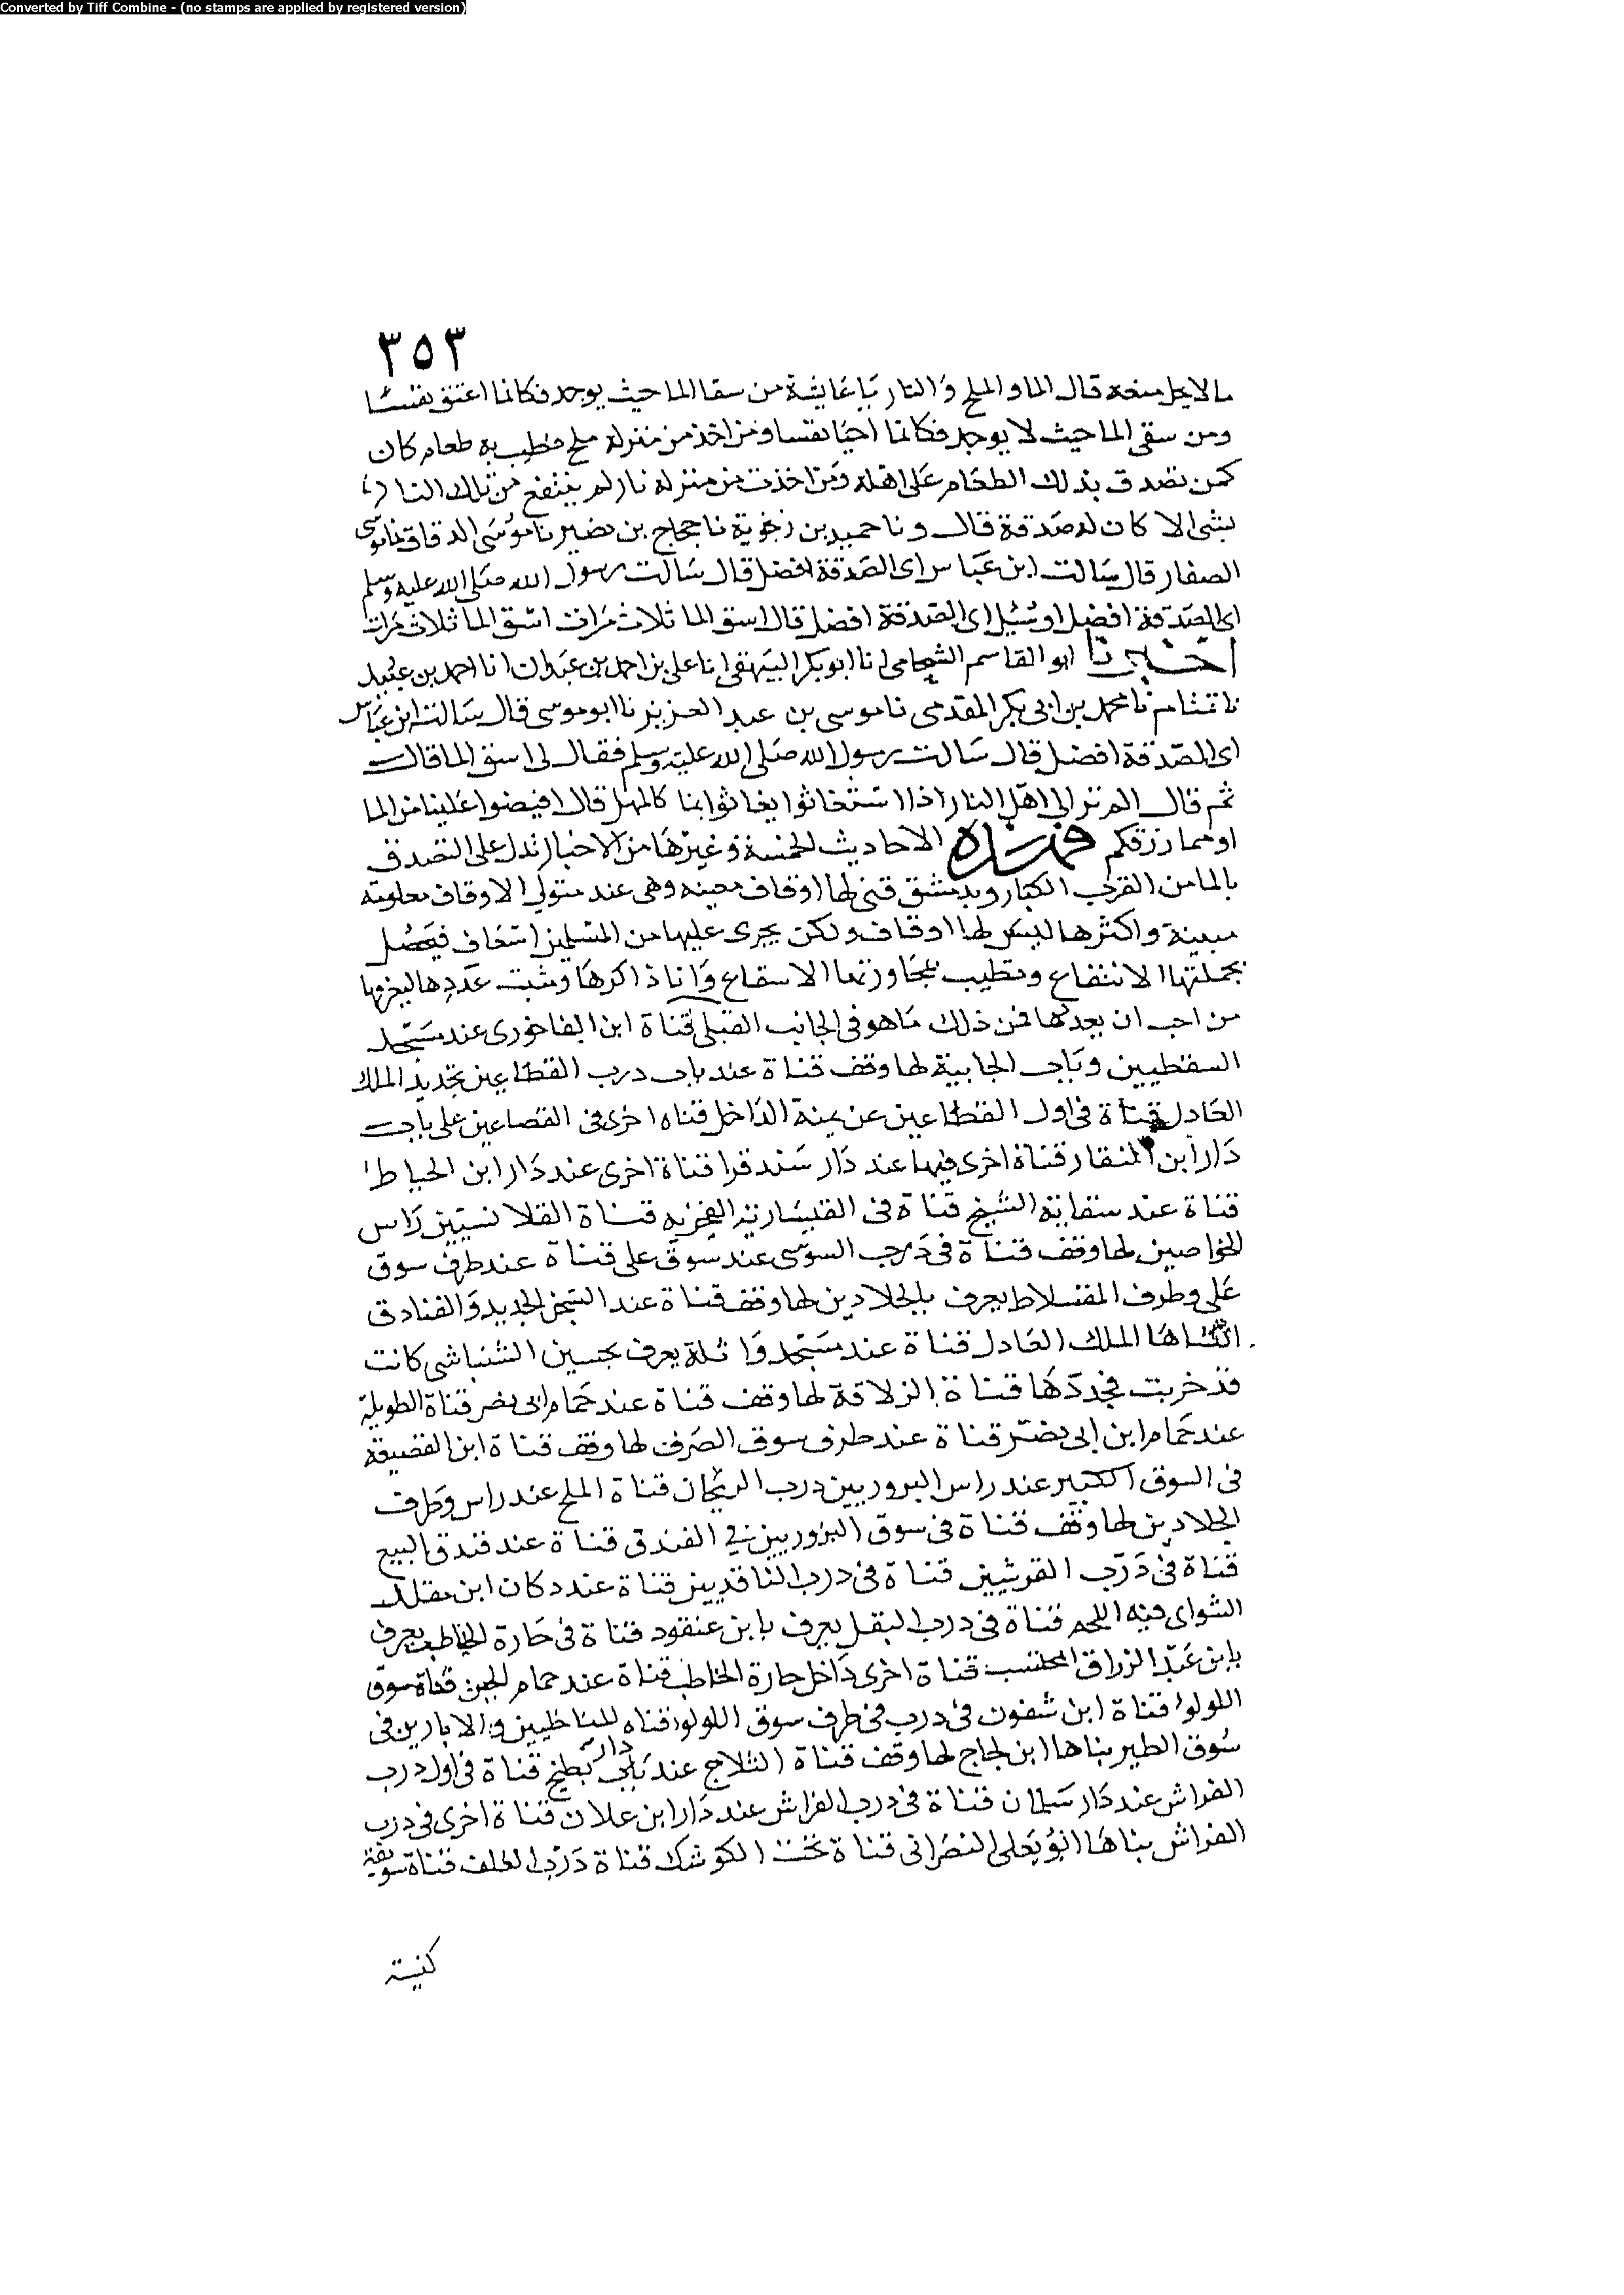 Converted by Tiff Combine - (no stamps are applied by registered version)
٣٥٣
ما لا يحل منعه قال الما والملح والنار يا عايشة من سقا الما حيث يوجد فكانما اعتق نفسا
ومن سقى الما حيث لا يوجد فكانما احيا نفسا ومن اخذ من منزله ملح فطيب به طعام كان
كمن تصدق بذلك الطعام على اهله ومن اخذت من منزله نار لم ينتفع من تلك النار
بشى الا كان له صدقة قال ونا حميد بن زنجوية نا حجاج بن نصير نا موسى الدقاق نا موسى
الصفار قال سالت ابن عباس اى الصدقة افضل قال سالت رسول الله صلى الله عليه وسلم
اى الصدقة افضل او سئل اى الصدقة افضل قال اسق الما ثلاث مرات اسق الما ثلاث مرات
اخبرنا ابو القاسم الشحامى انا ابو بكر البيهقى انا على بن احمد بن عبدان انا احمد بن عبيد
نا تمتام نا محمد بن ابى بكر المقدمى نا موسى بن عبد العزيز نا ابو موسى قال سالت ابن عباس
اى الصدقة افضل قال سالت رسول الله صلى الله عليه وسلم فقال لى اسق الما قال
ثم قال الم تر الى اهل النار اذا استغاثوا يغاثوا بما كالمهل قال افيضوا علينا من الما
او مما رزقكم فهذه الاحاديث الخمسة وغيرها من الاخبار تدل على التصدق
بالما من القرب الكبار وبدمشق قنى لها اوقاف معينه وهى عند متولى الاوقاف معلومة
مبينة واكثرها ليس لها اوقاف ولكن يجرى عليها من المسلمين اسعاف فيحصل
بجملتها الانتفاع وتطيب بمجاورتها الاسقاع وانا ذاكرها ومثبت عددها ليعرفها
من احب ان يعدها فمن ذلك ما هو فى الجانب القبلى قناة ابن الفاخورى عند مسجد
السقطيين وباب الجابية لها وقف قناة عند باب درب القطاعين تجديد الملك
العادل قناة فى اول القطاعين عن يمنة الداخل قناه اخرى فى القصاعين على باب
دار ابن المنقار قناة اخرى فيها عند دار سندقرا قناة اخرى عند دار ابن الحياط
قناة عند سقاية الشيخ قناة فى القيسارية الفخريه قناة القلانسيين راس
الخواصين لها وقف قناة فى درب السوسى عند سوق على قناة عند طرف سوق
على وطرف المقسلاط يعرف بالجلادين لها وقف قناة عند السجن الجديد والفنادق
انشاها الملك العادل قناة عند مسجد واثلة يعرف بحسين الشنباشى كانت
قد خربت فجددها قناة الزلاقة لها وقف قناة عند حمام ابى نصر قناة الطويلة
عند حمام ابن ابى نصر قناة عند طرف سوق الصرف لها وقف قناة ابن القصيعة
فى السوق الكبير عند راس البزوريين درب الريحان قناة الملح عند راس وطرف
الجلادين لها وقف قناة فى سوق البزوريين فى الفندق قناة عند فندق البيع
قناة فى درب القرشيين قناة فى درب الناقديين قناة عند دكان ابن مقلد
الشواى فيه اللحم قناة فى درب البقل يعرف بابن عنقود قناة فى حارة الخاطب يعرف
بابن عبد الرزاق المحتسب قناة اخرى داخل حارة الخاطب قناة عند حمام الجبن قناة سوق
اللولو قناة ابن شغون فى درب فى طرف سوق اللولو قناه للناطيين والابارين فى
سوق الطير بناها ابن لجاج لها وقف قناة الثلاج عند باب دار بطيخ قناة فى اول درب
الفراش عند دار سلمان قناة فى درب الفراش عند دار ابن علان قناة اخرى فى درب
الفراش بناها ابو يعلى النصرانى قناة تحت الكوشك قناة درب العلف قناة سويقة
كنيسة